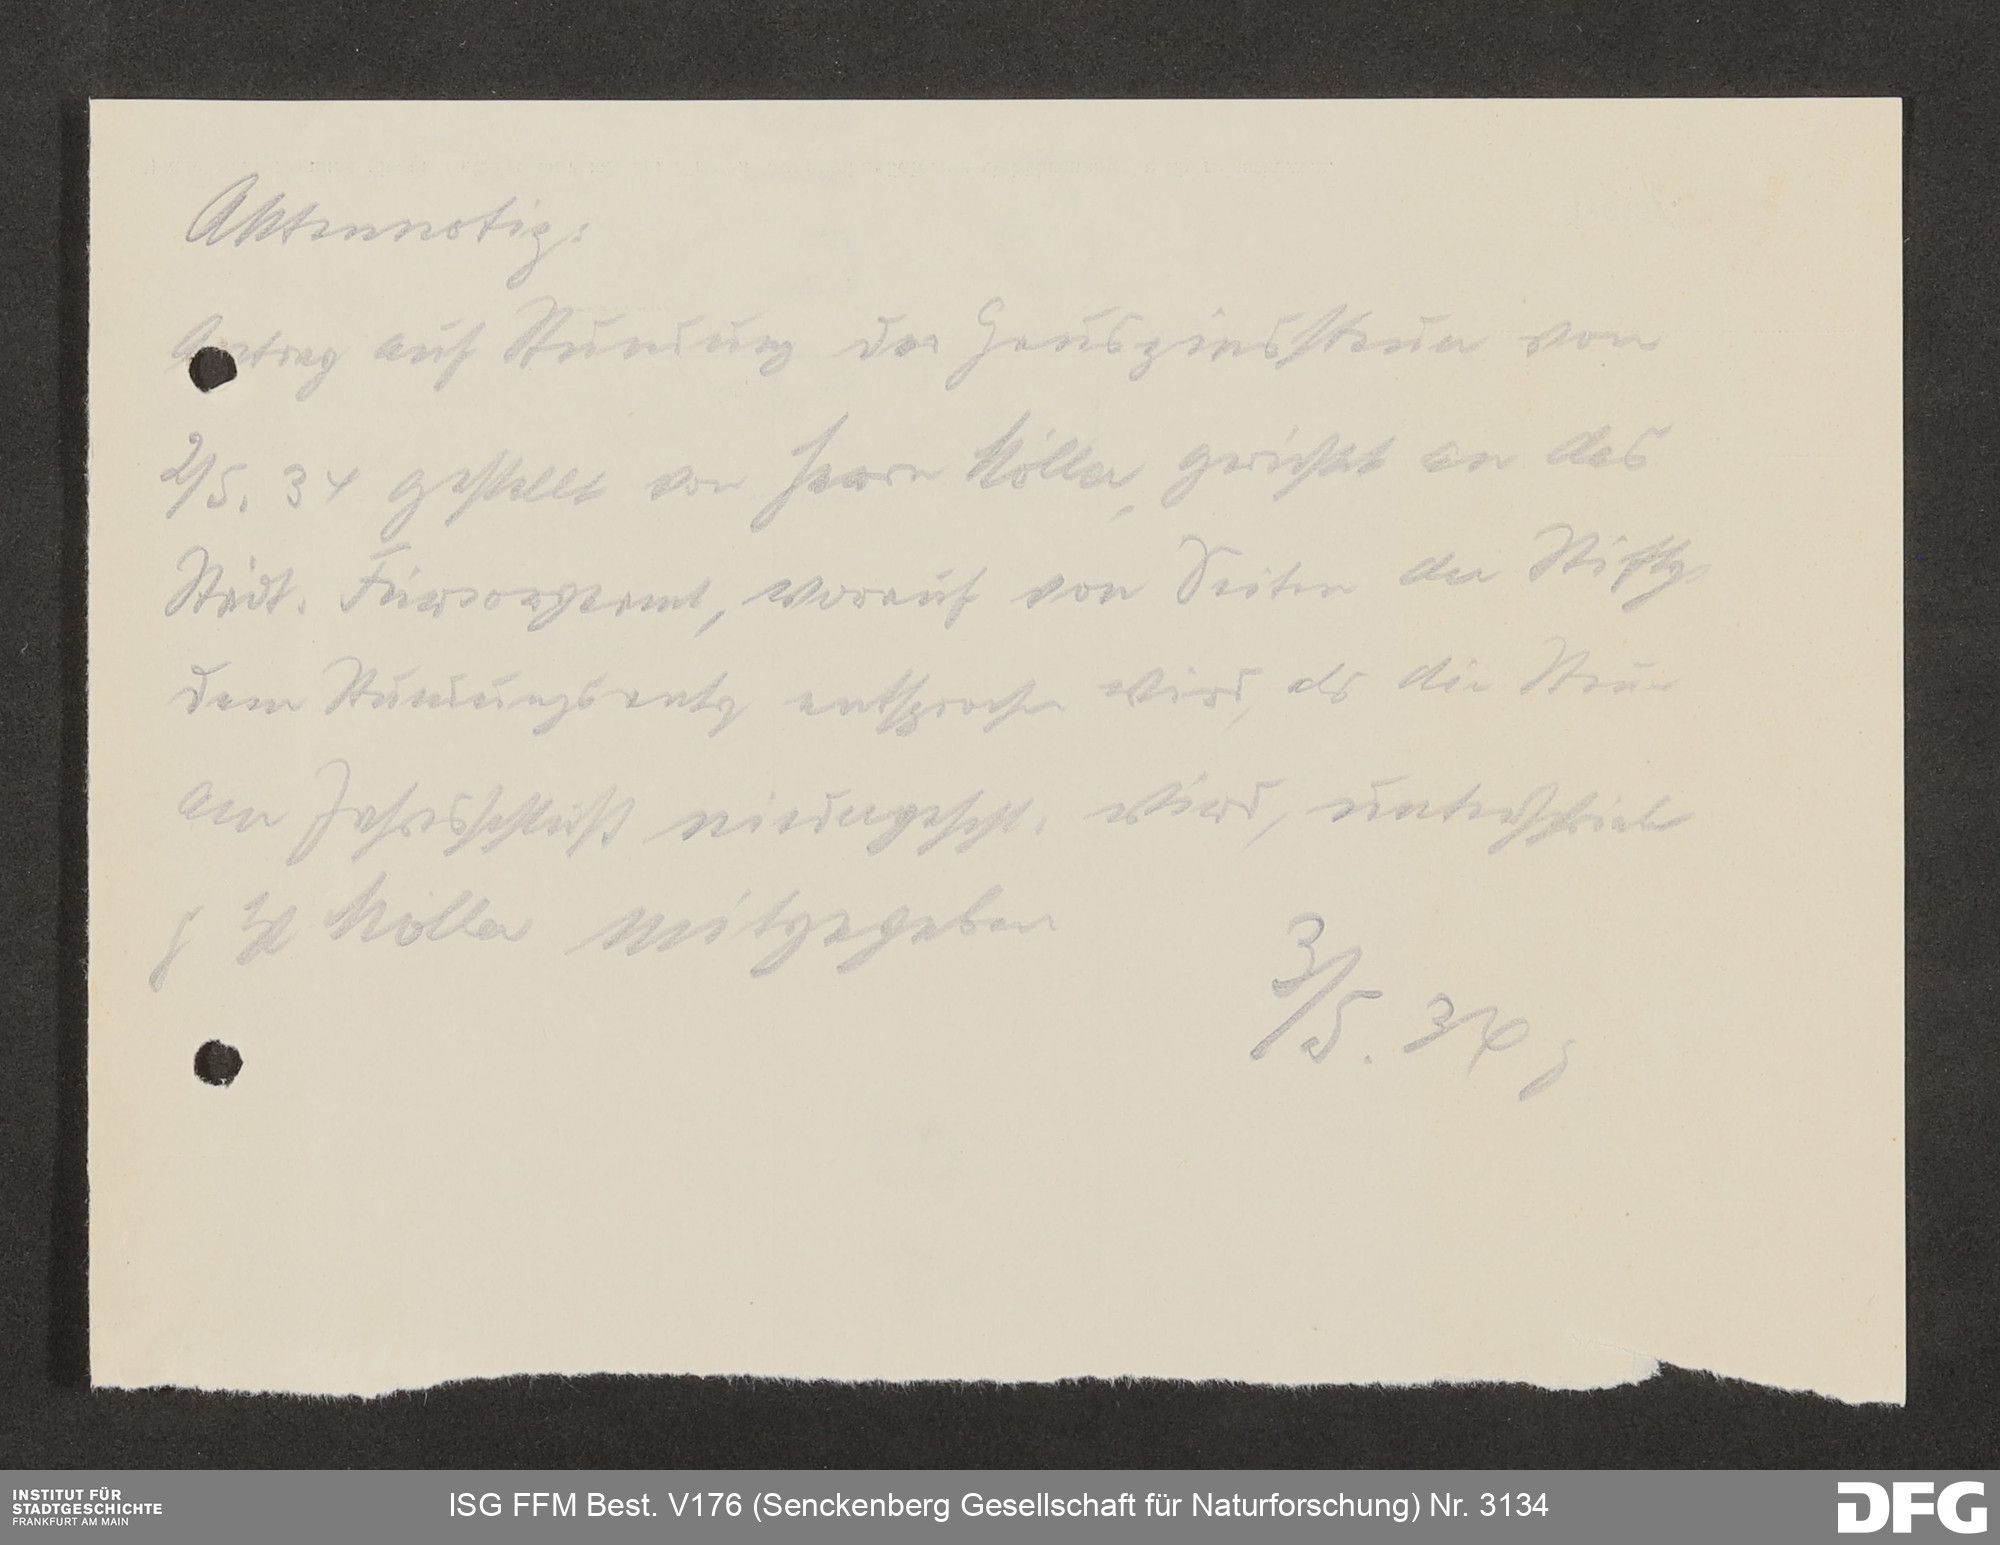 Aktennotiz:
Antrag auf Stundung der Hauszinssteuer von
2/5. 34 gestellt von Herrn Möller, gerichtet an das
Städt. Fürsorgeamt, worauf von Seiten der Stiftg
dem Stundungsantrg entsprochen wird, als die Steuer
am Jahresschluß niedergeschl. wird, unterschrieben
H Möller mitgegeben
3/5. 34
INSTITUT FÜR
STADTGESCHICHTE
FRANKFURT AM MAIN
ISG FFM Best. V176 (Senckenberg Gesellschaft für Naturforschung) Nr. 3134
DFG